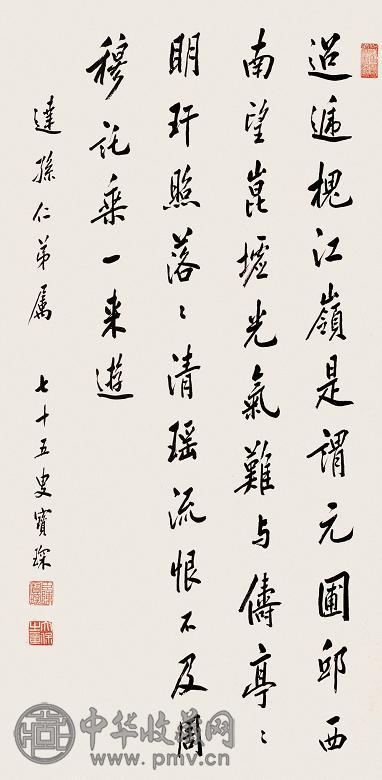 迢遞槐江嶺是謂元圃邱西
南望崑墟光氣難与儔亭〻
明玕照落〻清瑶流恨不及周
穆託乘一来遊
達孫仁弟属 七十五叟寶琛
中华收藏网
www.pmv.cn